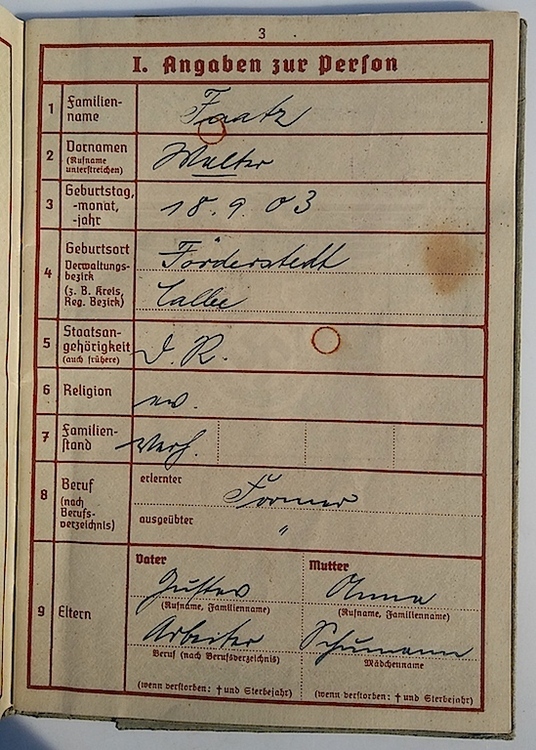 3
I. Angaben zur Person
1 Familien-
name
Faatz
2 Vornamen
(Rufname
unterstreichen)
Walter
3 Geburtstag,
-monat,
-jahr
18. 9. 03
4 Geburtsort
Verwaltungs-
bezirk
(z. B. Kreis,
Reg. Bezirk)
Förderstedt
Calbe
5 Staatsan-
gehörigkeit
(auch frühere)
D. R.
6 Religion
ev.
7 Familien-
stand
verh.
8 Beruf
(nach
Berufs-
verzeichnis)
erlernter
Former
ausgeübter
"
9 Eltern
Vater
Mutter
Gustav
Anna
(Rufname, Familienname)
(Rufname, Familienname)
Arbeiter
Schumann
Beruf (nach Berufsverzeichnis)
Mädchenname
(wenn verstorben: † und Sterbejahr)
(wenn verstorben: † und Sterbejahr)